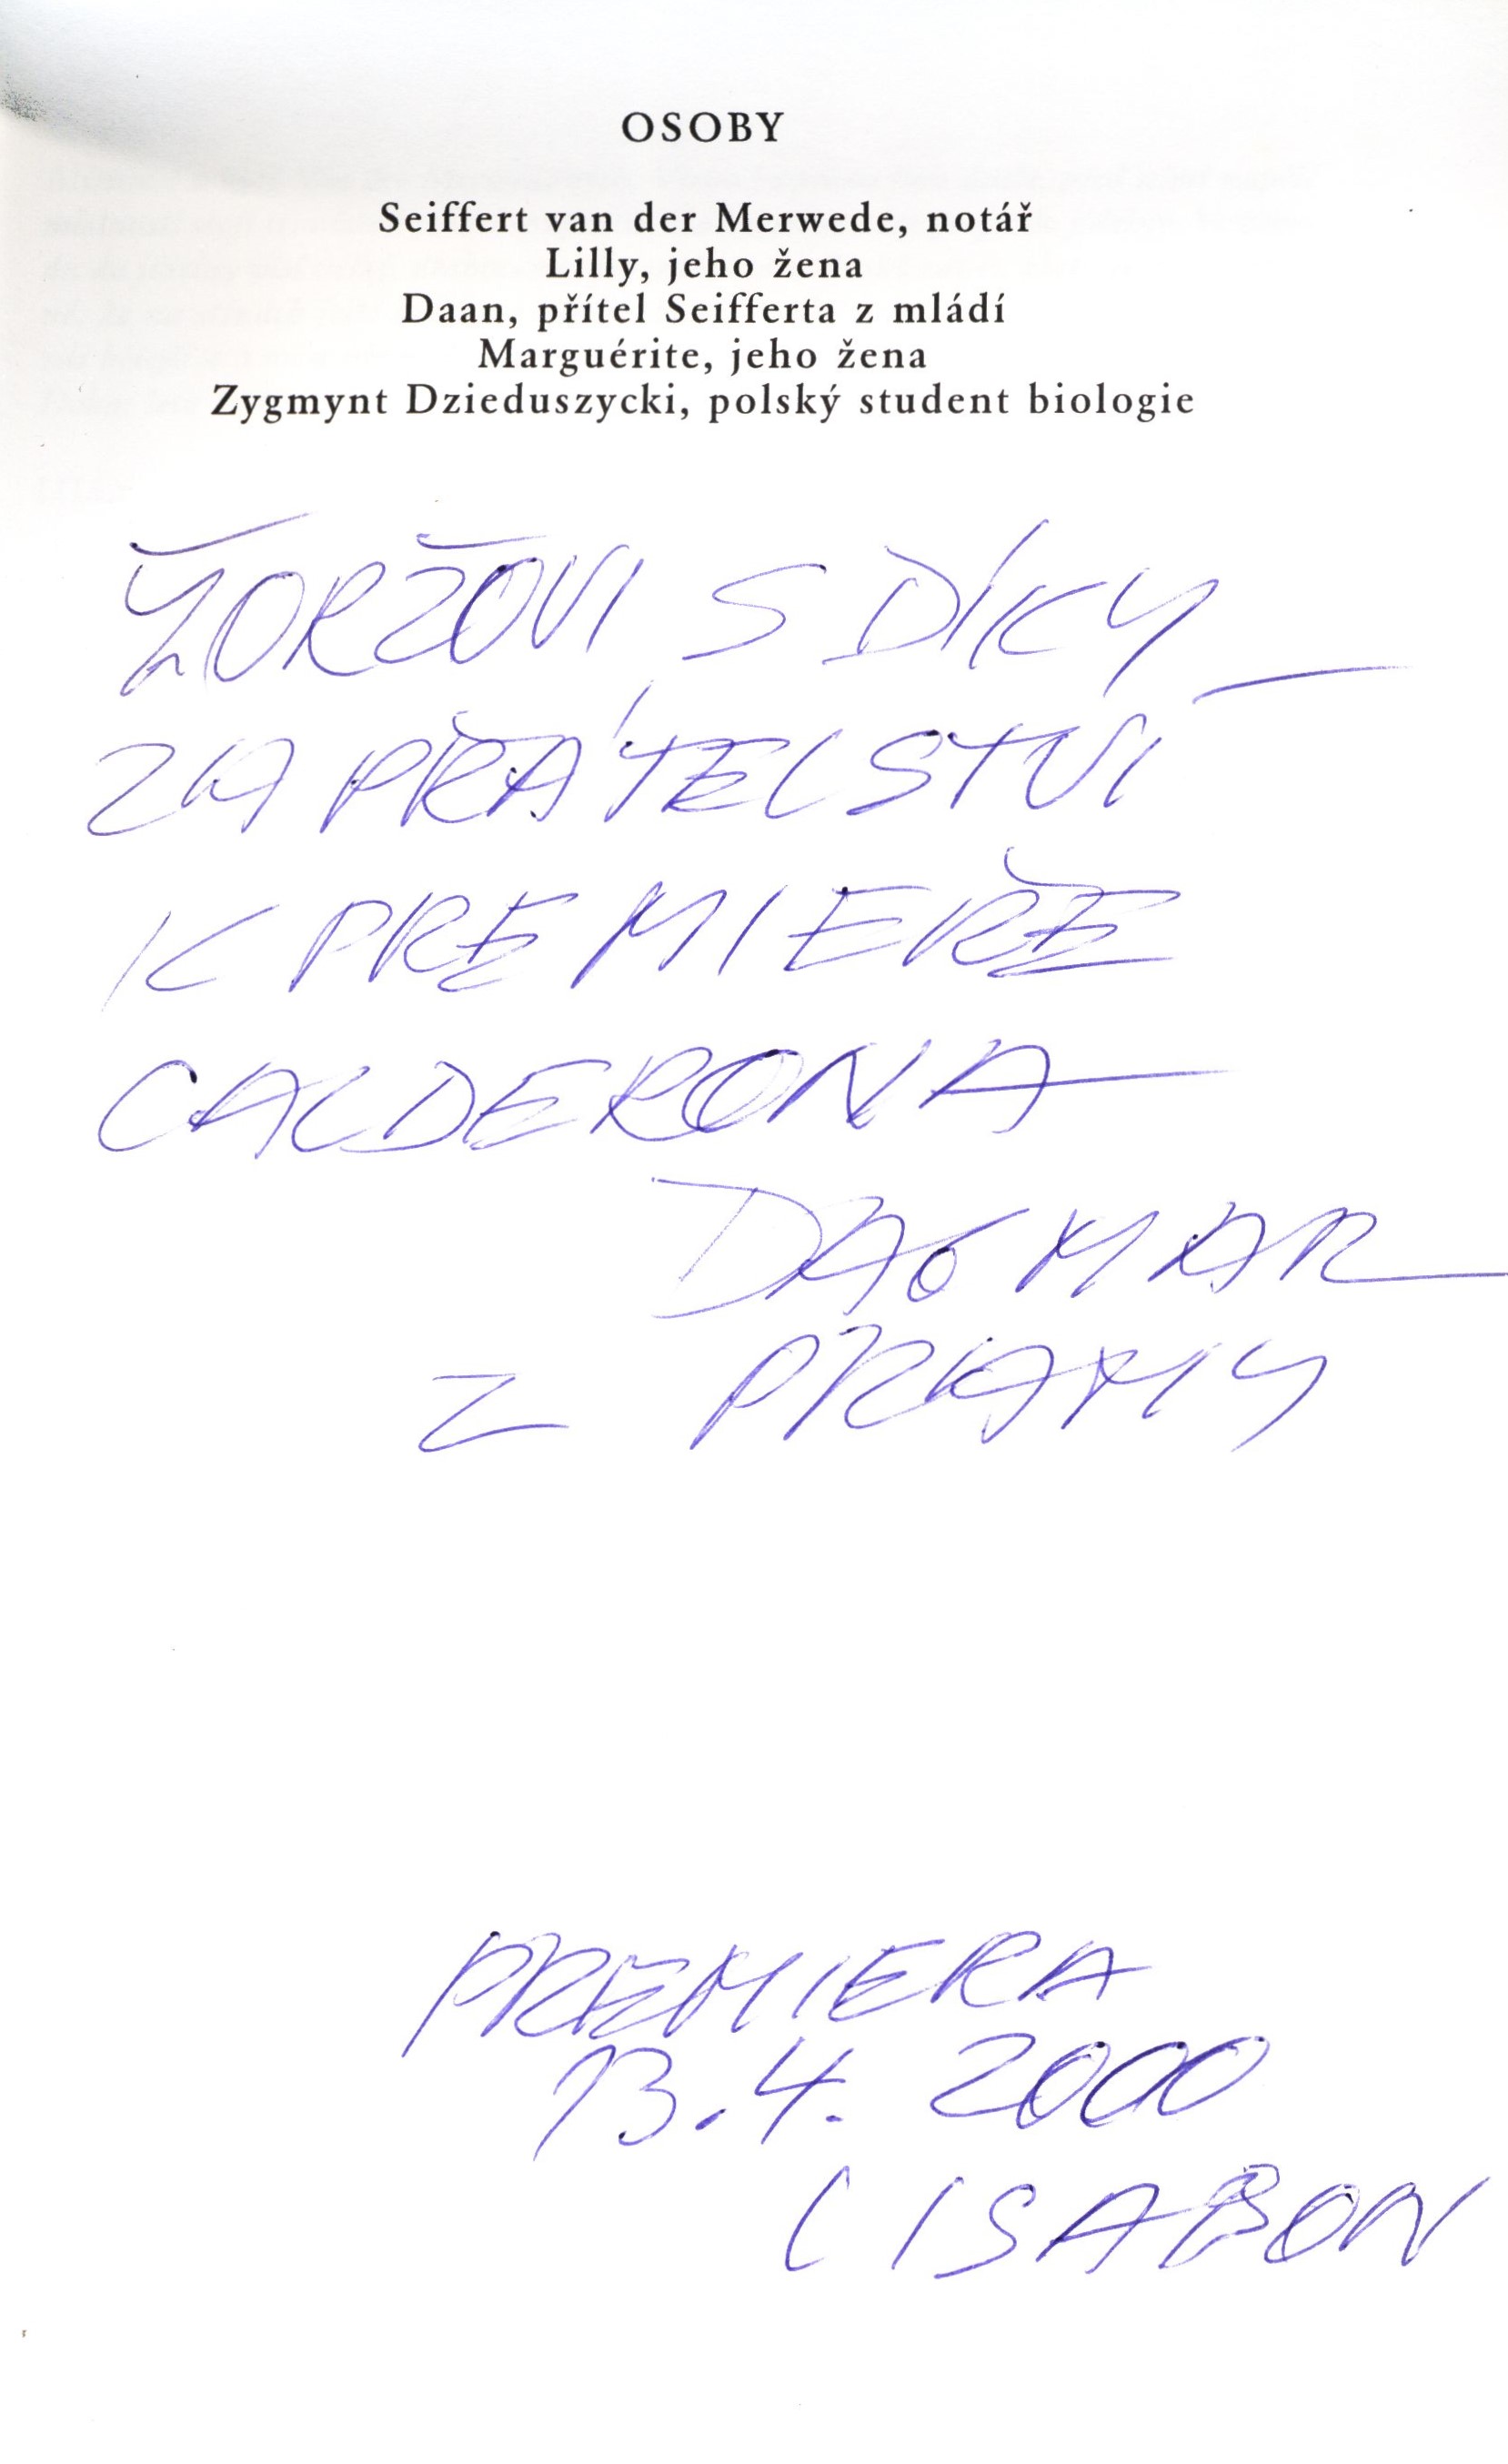 OSOBY
Seiffert van der Merwede, notář
Lilly, jeho žena
Daan, přítel Seifferta z mládí
Marguérite, jeho žena
Zygmynt Dzieduszycki, polský student biologie
ŽORŽOVI S DÍKY
ZA PŘÁTELSTVI
K PREMIEŘE
CALDERONA
DAGMAR
Z PRAHY
PREMIERA
13.4. 2000
LISABON